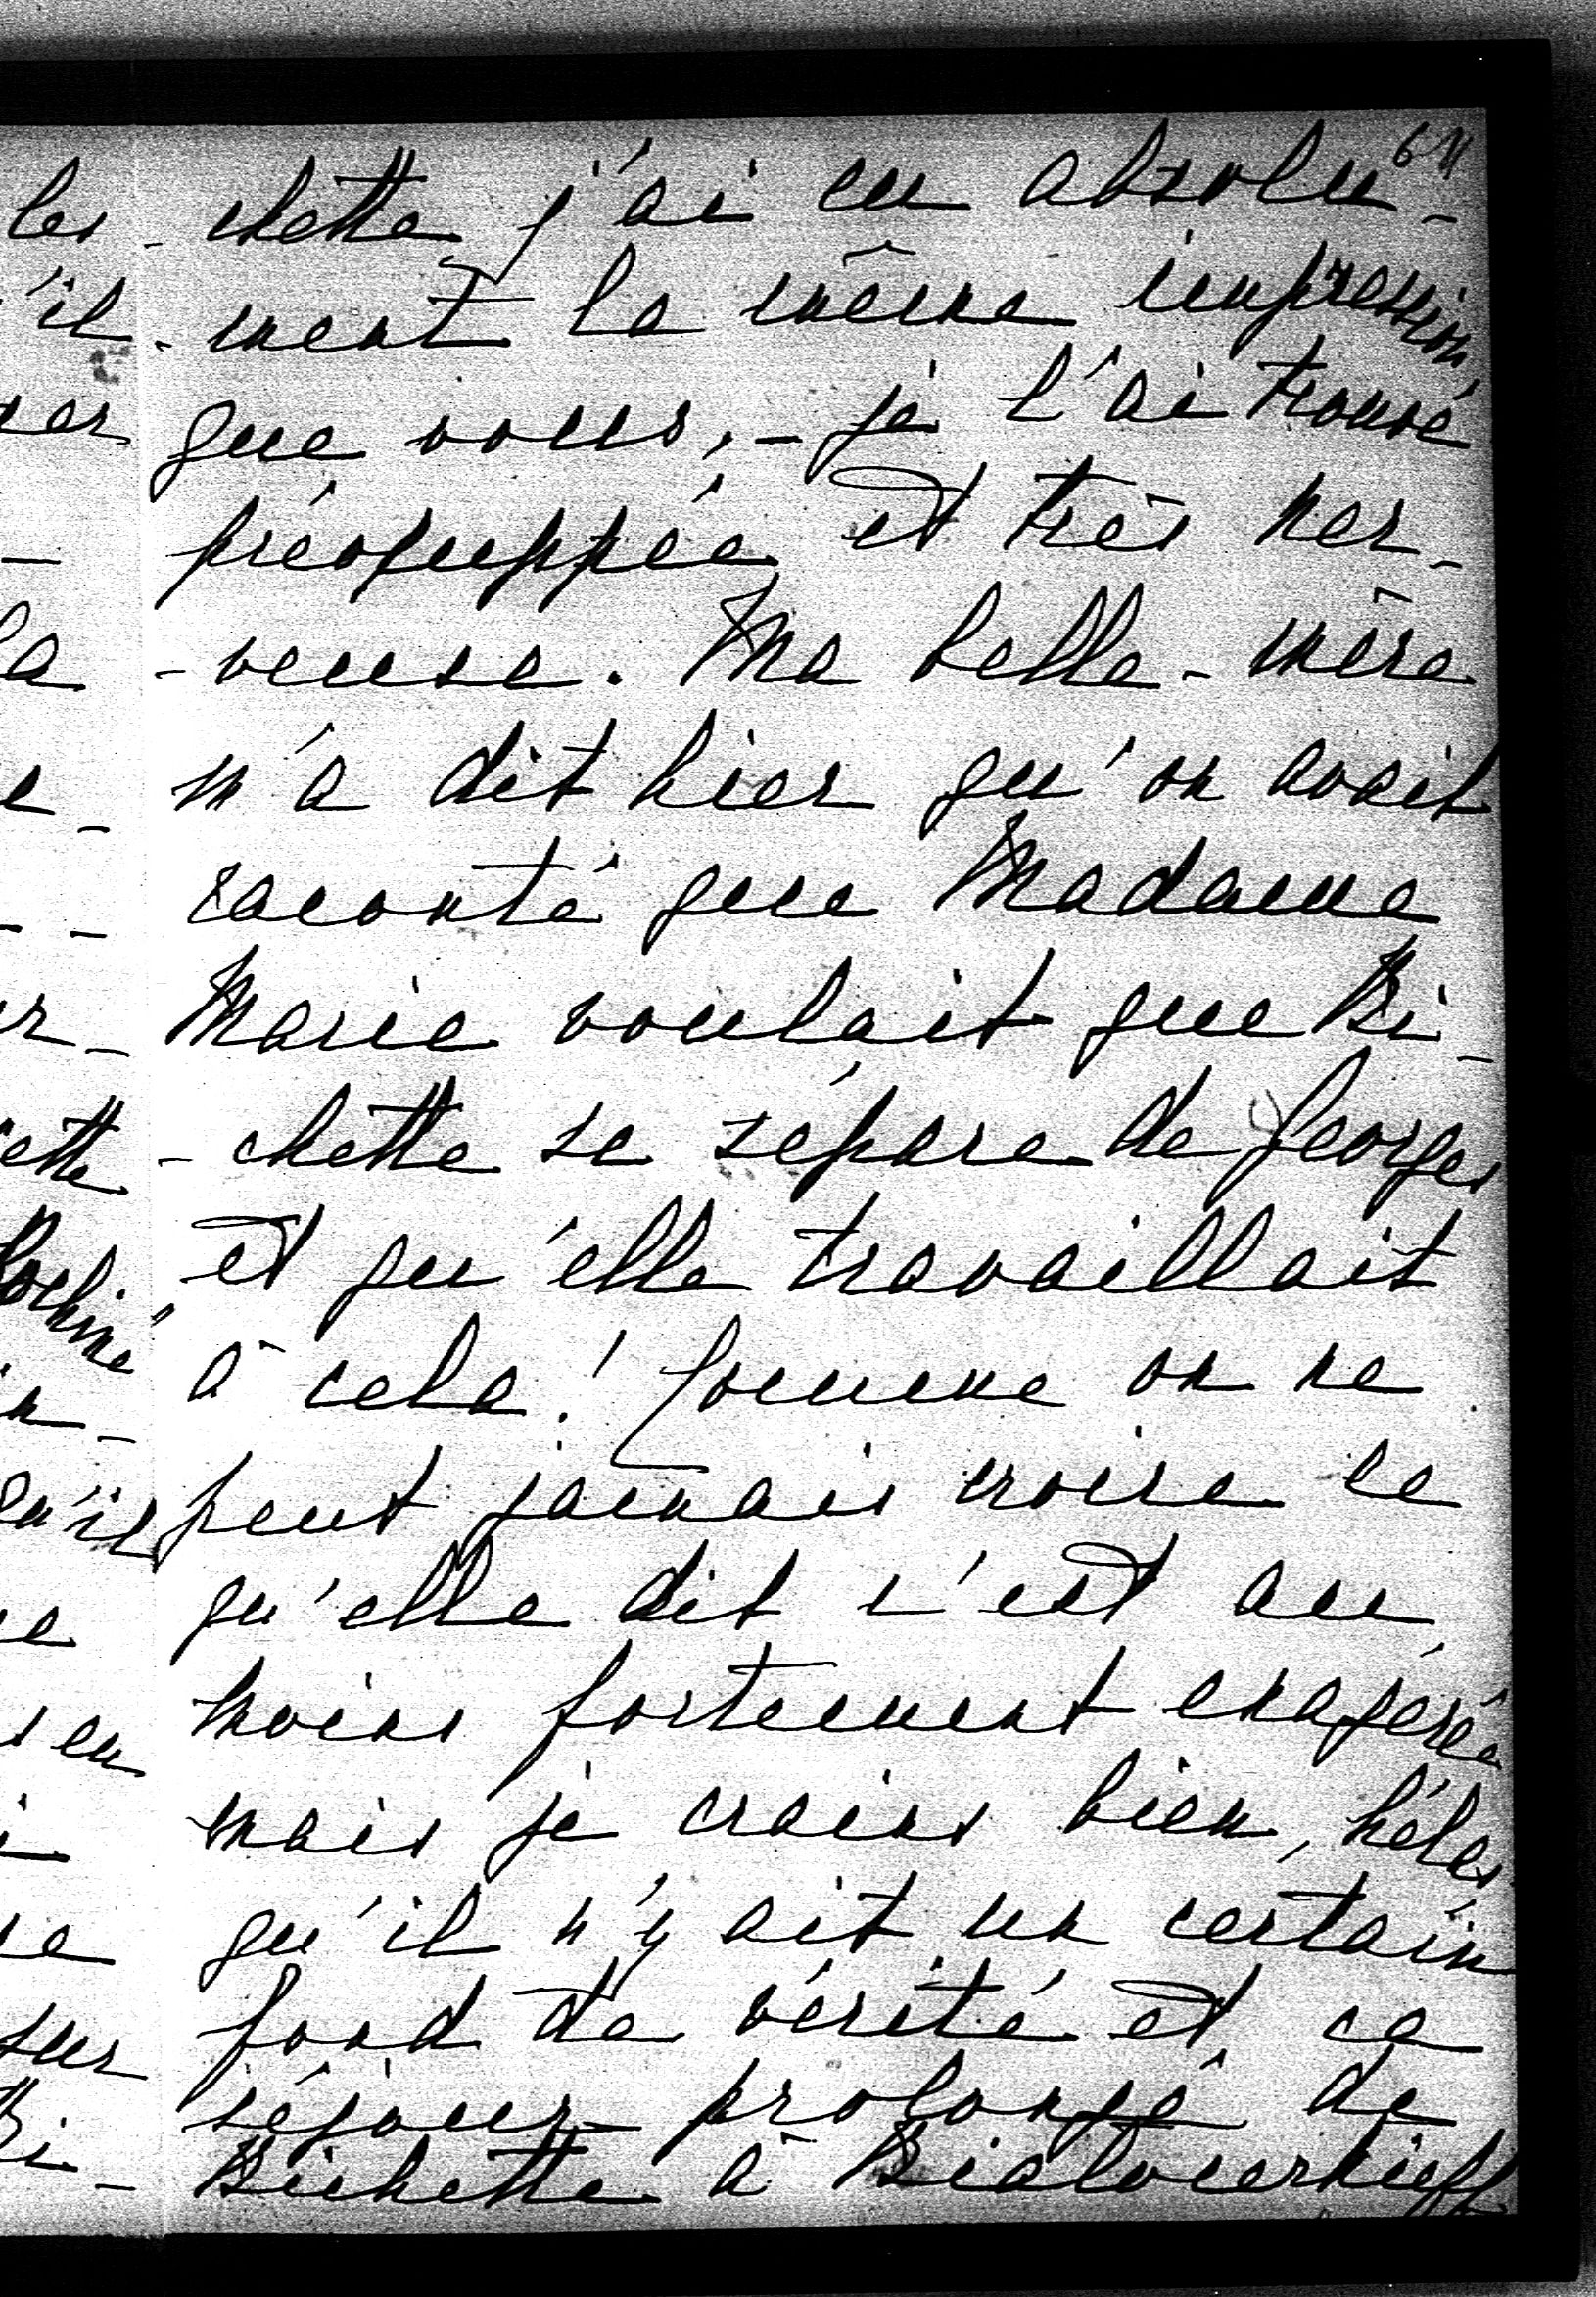 61
-chette j'ai eu absolu-
-ment la même impression,
que vous,- je l'ai trouvé
préoquppée et très ner-
-veuse. Ma belle-mère
m'a dit hier qu'on avait
raconté que Madame
Marie voulait que Bi-
-chette se sépare de Georges
et qu'elle travaillait
à cela! Comme on ne
peut jamais croire ce
qu'elle dit c'est au
moins fortement exagéré
mais je crains bien, hélas
qu'il n'y ait un certain
fond de vérité et ce
séjour prolongé de
Bichette à Bialocerkieff